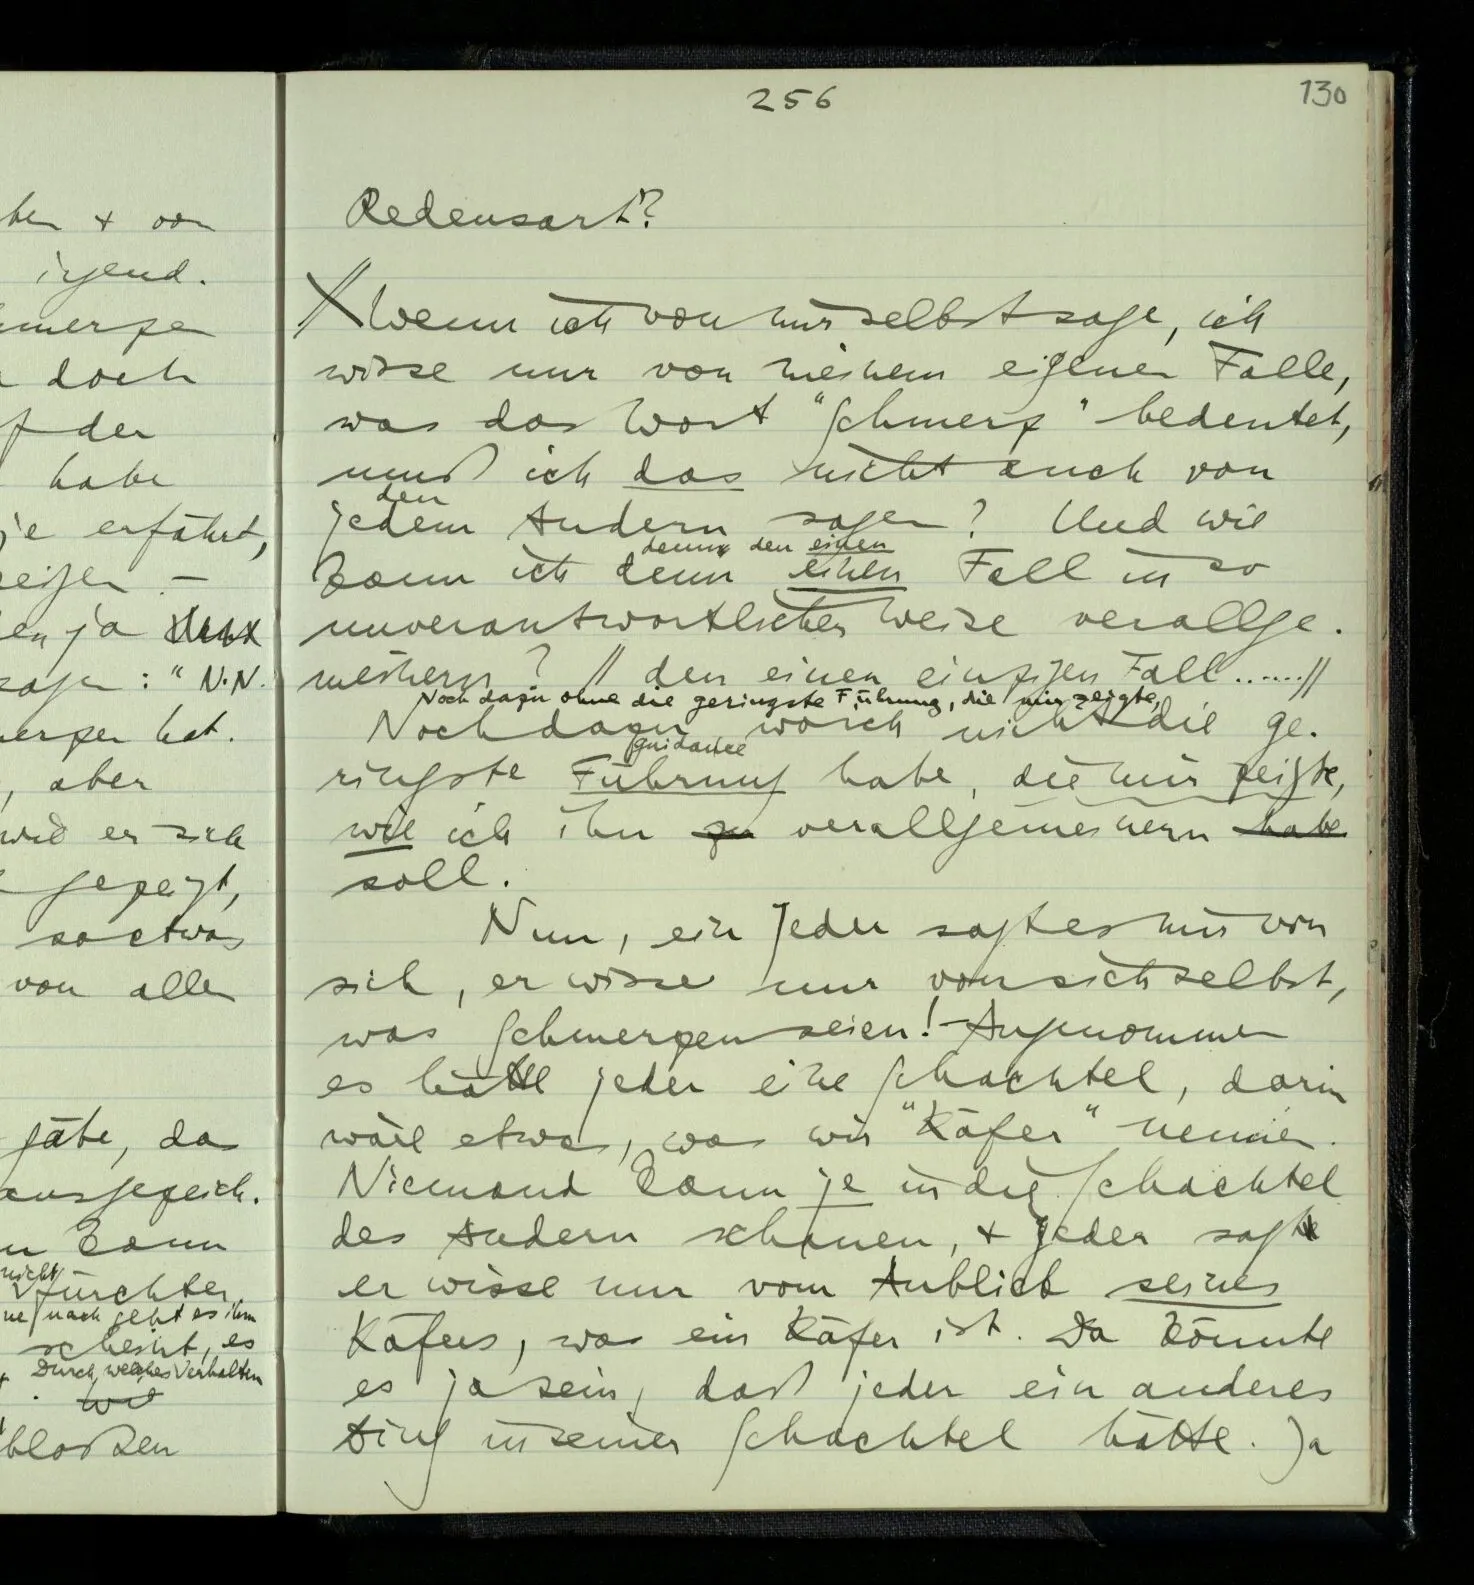 256
130
ben + von
irgend.
doch
der
habe
je erfährt,
en ja
sagen: "N.N.
hat.
, aber
wie er sich
gezeigt,
so etwas
von allen
gäbe, da
ausgezeich.
kann
nicht
fürchten,
nach geht es ihm
scheint, es
Durch welches Verhalten
wie
bloßen
Redensart?
Wenn ich von mir selbst sage, ich
wisse nur von meinem eigenen Falle,
was das Wort "Schmerz" bedeutet,
muß ich das nicht auch von
den
jedem Andern sagen? Und wie
denn den einen
kann ich denn einen Fall in so
unverantwortlicher Weise verallge-
meinern? // den einen einzigen Fall ......//
Noch dazu ohne die geringste Führung, die mir zeigte,
Noch dazu wo ich nicht die ge-
guidance
ringste Führung habe, die mir zeigte,
wie ich ihn zu verallgemeinern habe
soll.
Nun, ein Jeder sagt es mir von
sich, er wisse nur von sich selbst,
was Schmerzen seien! – Angenommen
es hätte jeder eine Schachtel, darin
wäre etwas, was wir "Käfer" nennen.
Niemand kann je in die Schachtel
des Andern schauen, + jeder sagt
er wisse nur vom Anblick seines
Käfers, was ein Käfer ist. Da könnte
es ja sein, daß jeder ein anderes
Ding in seiner Schachtel hätte. Ja